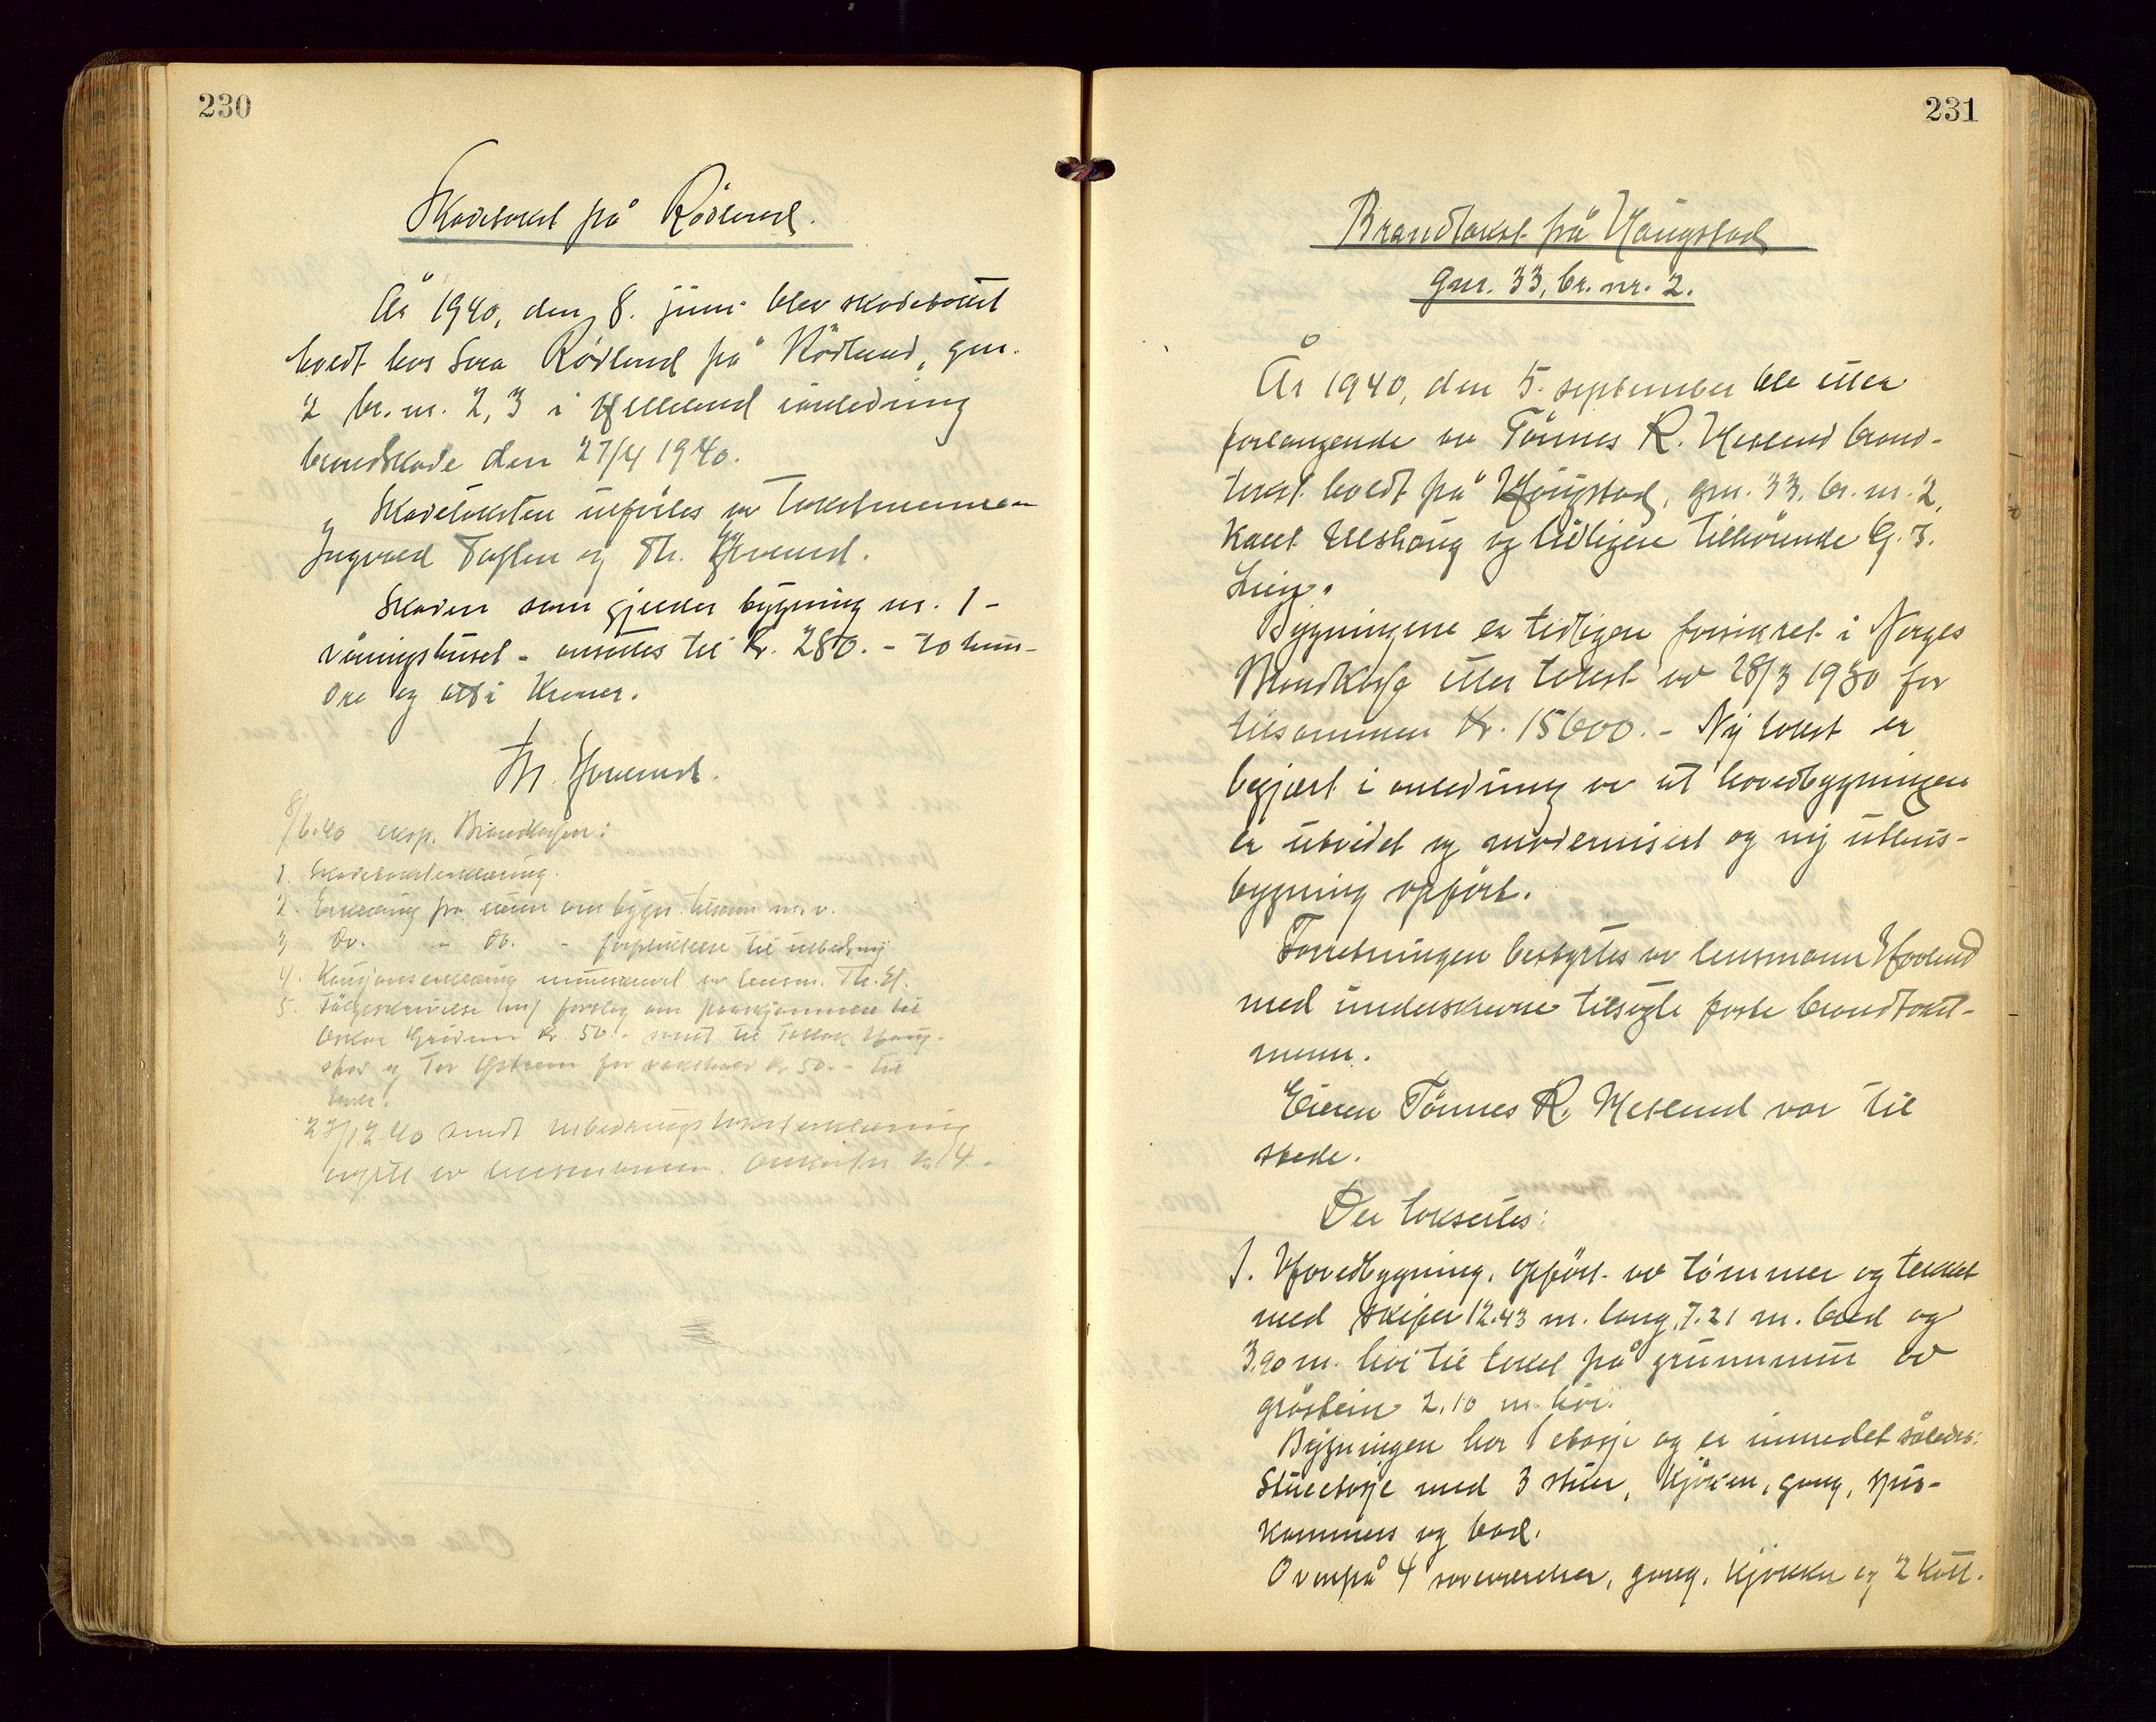 230
Skadetakst på Rödland.
År 1940, den 8. juni blev skadetakst
holdt hos Rödland på Rödland, gnr.
2 br.nr. 2, 3 i Helleland i anledning
brandskade den 27/4 1940.
Skadetaksten utförtes av takstmennene
Ingvald og Th. Hovland.
Skaden som gjelder bygning nr. 1 -
våningshuset - ansattes til Kr. 280. - to hun-
dre og otti Kroner.
Th. Hovland.
8/6.40 eksp. Brandkassen:
1. Skadetaksterklæring.
2. Erklæring fra eieren om bygn. m.v.
3 do. - do. - forpliktelse til utbedring
4. erklæring av lensm. Th. H.
5. Fölgeskrivelse forslag om til
Oskar Kr. 50.- samt til
og Tor for Kr 50. - til
27/12.40 sendt utbedringstaksterklæring
av lensmannen. Kr 4.-
231
Brandtakst på Haugstad
gnr. 33, br. nr. 2.
År 1940, den 5. september ble etter
forlangende av Tönnes R. Hesland brand-
takst holdt på Haugstad, gnr. 33, br. nr. 2,
kalt Elshaug og tidligere tilhörende G. T.
Lien.
Bygningene er tidligere forsikret i Norges
Brandkasse etter takst av 28/3 1930 for
tilsammen Kr. 15600. - Ny takst er
begjært i anledning av at hovedbygningen
er utvidet og modernisert og ny uthus-
bygning opfört.
Forretningen bestyrtes av lensmann Hovland
med underskrevne tilsagte faste brandtakst-
menn.
Eieren Tönnes R. Hesland var til
stede.
Der takseres:
1. Hovedbygning, opfört av tömmer og tekket
med skifer 12.43 m. lang, 7.21 m. bred og
3.90 m. höi til taket på grunnmur av
gråstein 2.10 m. höi.
Bygningen har 1 etasje og er innredet således:
Stueetasje med 3 stuer, kjöken, gang, spis-
kammers og bad.
Ovenpå 4 soveværelser, gang, kjökken og 2 kott.